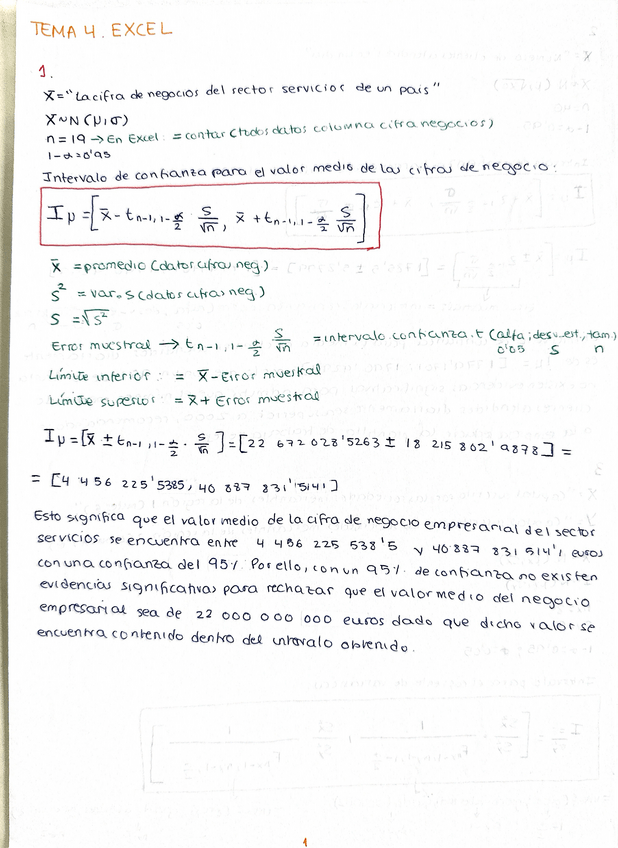 TEMA 4. EXCEL
1.
X="La cifra de negocios del sector servicios de un país"
X~N(μ,σ)
n = 19 → En Excel: =contar(todos datos columna cifra negocios)
1-α=0'95
Intervalo de confianza para el valor medio de las cifras de negocio:
Iμ = [x̄ - t n-1, 1-α/2 S/√n, x̄ + t n-1, 1-α/2 S/√n]
x̄ =promedio(datos cifra neg)
S² =var.s(datos cifras neg)
S =√S²
Error muestral → t n-1, 1-α/2 S/√n =intervalo.confianza.t(alfa; desv.est., tam.)
0'05 S n
Límite inferior: = x̄ - Error muestral
Límite superior: = x̄ + Error muestral
Iμ = [x̄ ± t n-1, 1-α/2 · S/√n] = [22 672 028'5263 ± 18 215 802'9878] =
= [4 456 225'5385, 40 887 831'5141]
Esto significa que el valor medio de la cifra de negocio empresarial del sector
servicios se encuentra entre 4 456 225 538'5 y 40.887 831 514'1 euros
con una confianza del 95%. Por ello, con un 95% de confianza no existen
evidencias significativas para rechazar que el valor medio del negocio
empresarial sea de 22 000 000 000 euros dado que dicho valor se
encuentra contenido dentro del intervalo obtenido.
1